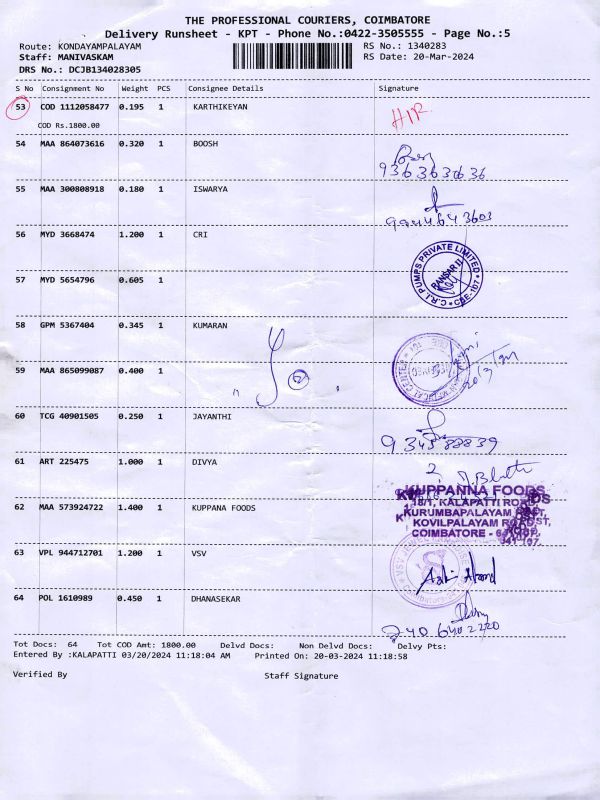 THE PROFESSIONAL COURIERS, COIMBATORE
Delivery Runsheet - KPT - Phone No.:0422-3505555 - Page No.:5
Route: KONDAYAMPALAYAM RS No.: 1340283
Staff: MANIVASKAM RS Date: 20-Mar-2024
DRS No.: DCJB134028305
S No Consignment No Weight PCS Consignee Details Signature
53 COD 1112058477 0.195 1 KARTHIKEYAN
COD Rs.1800.00
54 MAA 864073616 0.320 1 BOOSH
55 MAA 300808918 0.180 1 ISWARYA
9944643603
56 MYD 3668474 1.200 1 CRI
C.R.I. PUMPS PRIVATE LIMITED
57 MYD 5654796 0.605 1
58 GPM 5367404 0.345 1 KUMARAN
59 MAA 865099087 0.400 1
60 TCG 40901505 0.250 1 JAYANTHI
61 ART 225475 1.000 1 DIVYA
62 MAA 573924722 1.400 1 KUPPANA FOODS
KUPPANNA FOODS
18/1, KALAPATTI ROAD
KURUMBAPALAYAM
KOVILPALAYAM
COIMBATORE
63 VPL 944712701 1.200 1 VSV
64 POL 1610989 0.450 1 DHANASEKAR
Tot Docs: 64 Tot COD Amt: 1800.00 Delvd Docs: Non Delvd Docs: Delvy Pts:
Entered By :KALAPATTI 03/20/2024 11:18:04 AM Printed On: 20-03-2024 11:18:58
Verified By Staff Signature